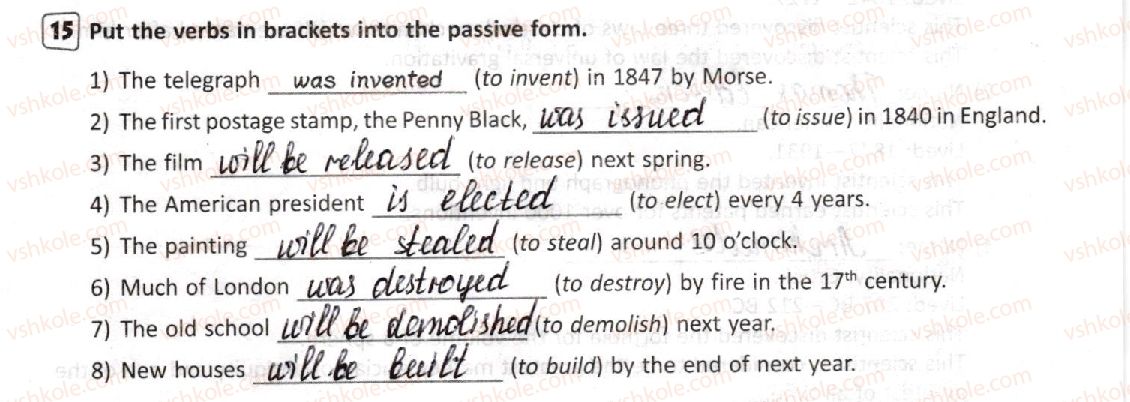 15 Put the verbs in brackets into the passive form.
1) The telegraph was invented (to invent) in 1847 by Morse.
2) The first postage stamp, the Penny Black, was issued (to issue) in 1840 in England.
3) The film will be released (to release) next spring.
4) The American president is elected (to elect) every 4 years.
5) The painting will be stealed (to steal) around 10 o'clock.
6) Much of London was destroyed (to destroy) by fire in the 17th century.
7) The old school will be demolished (to demolish) next year.
8) New houses will be built (to build) by the end of next year.
vshkole.com